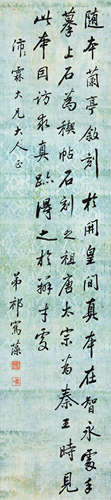 随本蘭亭叙刻於開皇間真本在智永處是
摹上石為禊帖石刻之祖唐太宗為秦王時見
此本因訪求真跡得之於辯才處
沛霖大兄大人正
弟祁寯藻